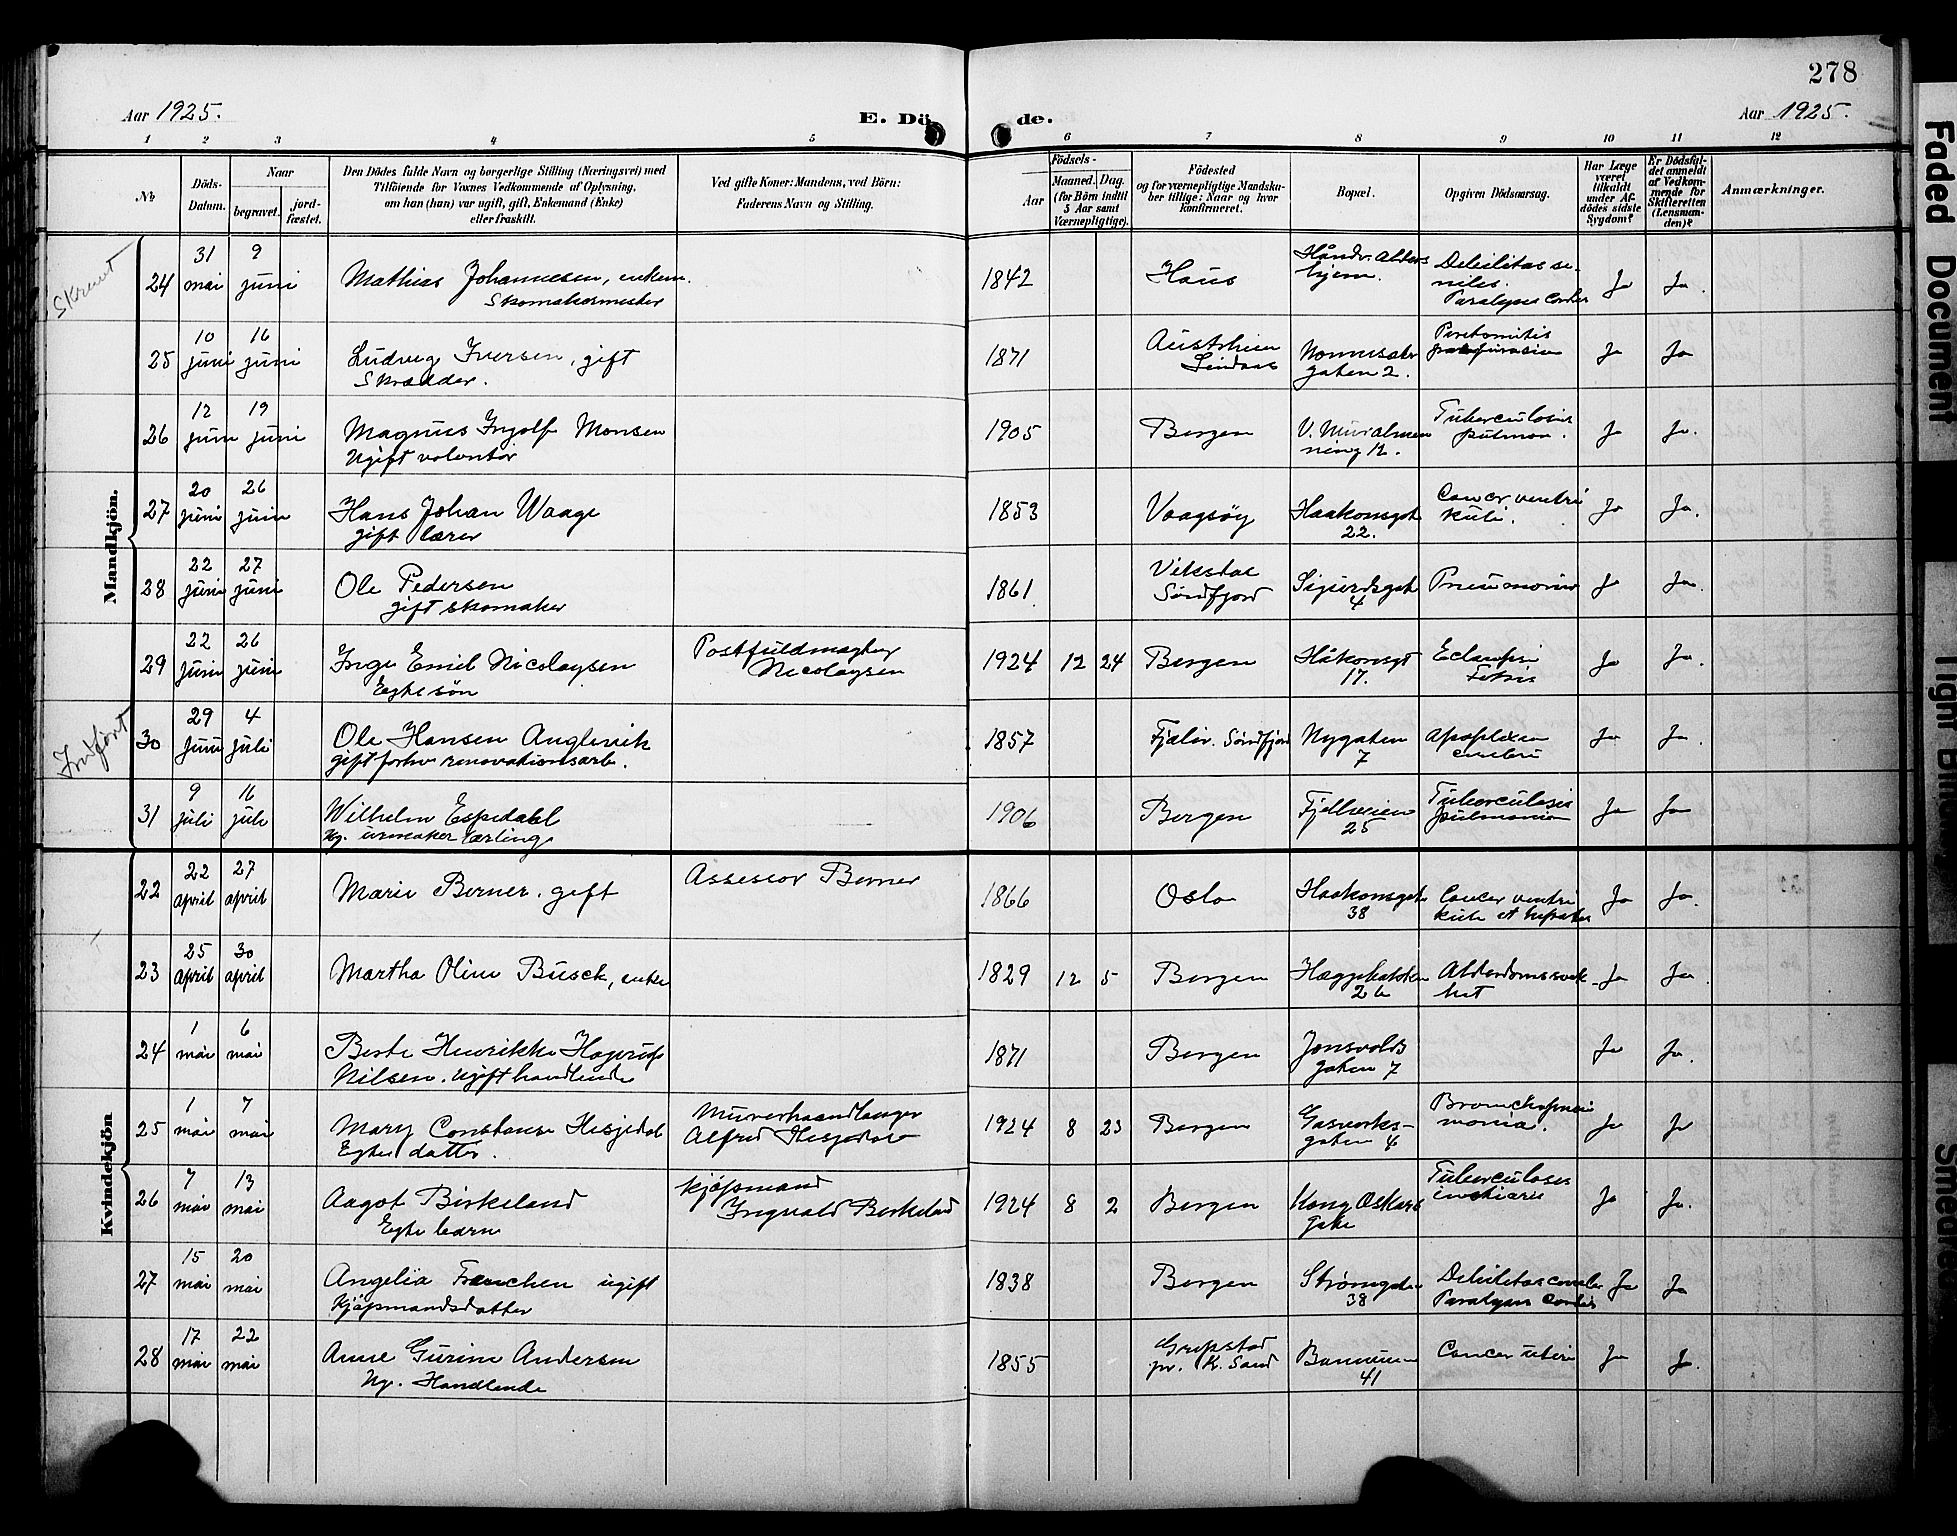 278
Aar 1925.
E. Dö
de.
Aar 1925.
1 2 3 4 5 6 7 8 9 10 11 12
No
Döds-
Datum.
Naar
begravet.
jord-
fæstet.
Den Dödes fulde Navn og borgerlige Stilling (Næringsvei) med
Tilföiende för Voxnes Vedkommende af Oplysning,
om han (hun) var ugift, gift, Enkemand (Enke)
eller fraskilt.
Ved gifte Koner: Mandens, ved Börn:
Faderens Navn og Stilling.
Födsels-
Aar
Maaned. Dag.
(for Börn indtil
5 Aar samt
Værnepligtige).
Födested
og for værnepligtige Mandska-
ber tillige: Naar og hvor
konfirmeret.
Bopæl.
Opgiven Dödsaarsag.
Har Læge
været
tilkaldt
under Af-
dödes sidste
Sygdom?
Er Dödsfal-
det anmeldt
af Vedkom-
mende for
Skifteretten
(Lensman-
den)?
Anmærkninger.
Mandkjön.
24 31 mai 9 juni Mathias Johannesen, enkem.
Skomakermester
1842 Haus Håndv. Alders
hjem.
Debilitas se-
nilis.
Paralysis cordis
Ja Ja.
25 10 juni 16 juni Ludvig Iversen, gift
Skrædder.
1871 Austrheim
Lindaas
gaten 2.
Ja Ja
26 12 juni 19 juni Magnus Ingolf Monsen
Ugift volontør
1905 Bergen V. Muralmen
ning 12.
Tuberculosis
pulmon.
Ja Ja.
27 20 juni 26 juni Hans Johan Waage
gift lærer
1853 Vaagsöy Haakonsgt
22.
Cancer ventri
kuli.
Ja Ja.
28 22 juni 27 juni Ole Pedersen
gift skomaker
1861 Söndfjord Sigurdsgt
4
Pneumonia Ja Ja.
29 22 juni 26 juni Inge Emil Nicolaysen
Egte søn
Postfuldmægtig
Nicolaysen
1924 12 24 Bergen Håkonsgt
17.
Ja Ja.
Indført
30 29 juni 4 juli Ole Hansen
gift forhv renovationsarb.
1857 Fjaler. Søndfjord Nygaten
7
Ja Ja.
31 9 juli 16 juli Wilhelm Espedahl
Ug. urmaker lærling
1906 Bergen Fjellveien
25
Tuberculosis
pulmonum
Ja Ja
Kvindekjön
22 22 april 27 april Marie Berner. gift
Assessor Berner
1866 Oslo Haakonsgt
38
Cancer ventri
kuli et hepatis
Ja Ja.
23 25 april 30 april Martha Oline Büsck, enke
1829 12 5 Bergen
Alderdomssvak
het
Ja Ja
24 1 mai 6 mai Henrikke Hagerup
Nilsen. Ugift handlende
1871 Bergen Jonsvolds
gaten 7
Ja Ja.
25 1 mai 7 mai Mary Constanse Hesjedal
Egte datter.
Murerhaandlanger
Alfred Hesjedal
1924 8 23 Bergen Gasverks-
gaten
Bronchopneu
monia.
Ja Ja
26 7 mai 13 mai Aagot Birkeland
Egte barn
Kjøpmand
Ingvald Birkeland
1924 8 2 Bergen Kong Oskars
gate
Tuberculosis
Ja Ja.
27 15 mai 20 mai Angelia ugift
Kjøpmandsdatter
1838 Bergen Strømgaten
38
Debilitas
Paralysis cordis
Ja Ja
28 17 mai 22 mai Anne Gurine Andersen
Ug. Handlende
1855
pr. K. Sand
41
Cancer uteri Ja Ja.
Faded Document
Tight Binding
Smeared